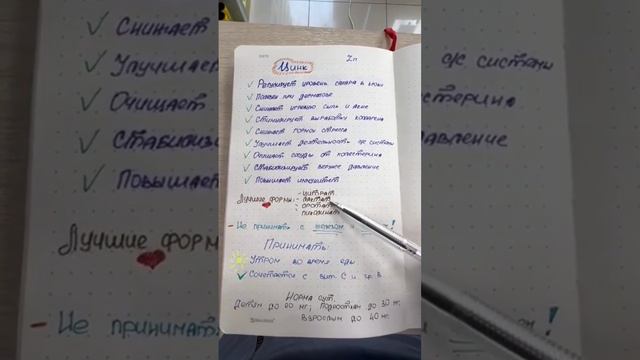 Цинк Zn
✓ Регулирует уровень сахара в крови
✓ Полезен при дерматозе
✓ Снижает угревую сыпь и акне
✓ Стимулирует выработку коллагена
✓ Снижает гормон стресса
✓ Улучшает деятельность с/с системы
✓ Очищает сосуды от холестерина
✓ Стабилизирует давление
✓ Повышает иммунитет
Лучшие формы: - цитрат
- лактат
- оротат
- пиколинат
- Не принимать с и !
Принимать:
Утром во время еды
✓ Сочетается с вит. С и гр. В
Норма сут.
Детям до 20 мг; Подросткам до 30 мг.
Взрослым до 40 мг.
✓ Снижает
✓ Улучшает с/с системы
✓ Очищает
✓ Стабилиз давление
✓ Повышает
Лучшие форм
- Не принимат !